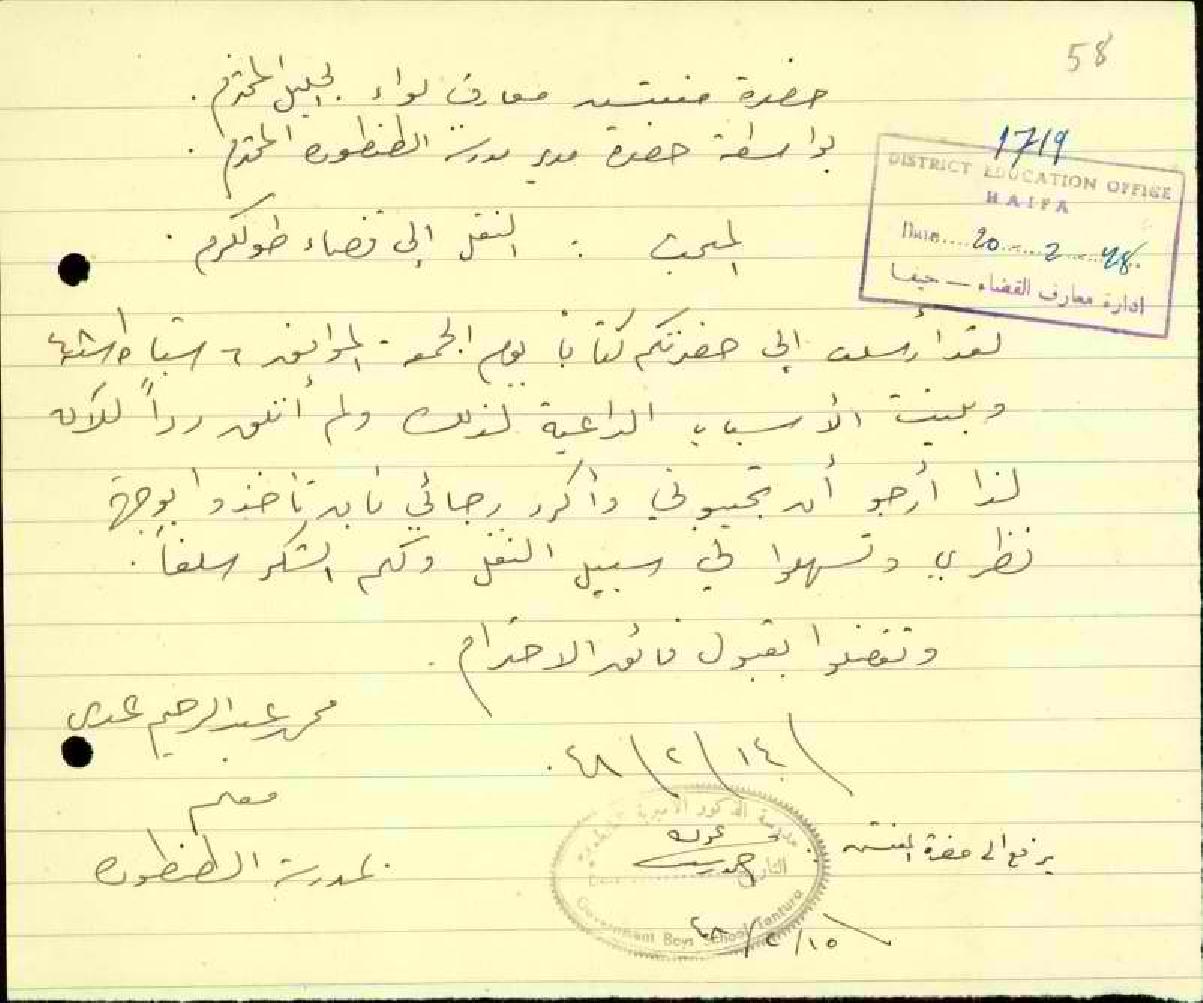 58
حضرة مفتش معارف لواء الجليل المحترم .
بواسطة حضرة مدير مدرسة الطنطورة المحترم .
1719
DISTRICT EDUCATION OFFICE
HAIFA
Date.... 20 ..... 2 ..... 48 ..
ادارة معارف القضاء — حيفا
المبحث : النقل إلى قضاء طولكرم .
لقد أرسلت إلى حضرتكم كتابا يوم الجمعة الموافق ٦ شباط سنة ٤٨
وبينت الأسباب الداعية لذلك ولم أتلق رداً للآن
لذا أرجو أن تجيبوني وأكرر رجائي بأن تأخذوا بوجهة
نظري وتسهلوا لي سبيل النقل ولكم الشكر سلفاً .
وتفضلوا بقبول فائق الاحترام .
محمد عبد الرحيم
١٤/٢/٤٨ .
معلم
بمدرسة الطنطورة
يرفع الى حضرة المفتش .
مدرسة الذكور الأميرية
التاريخ
Date
Government Boys School Tantura
١٥/٢/٤٨